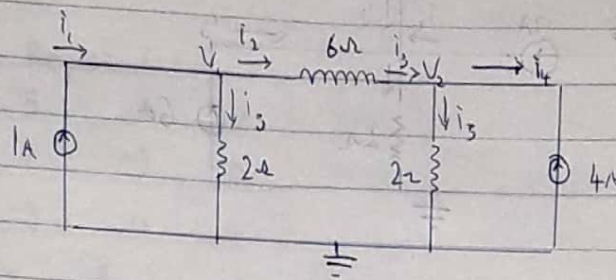 i₁ V₁ i₂ 6Ω i₃ V₂ i₄
i₃ i₅
1A 2Ω 2Ω 4A